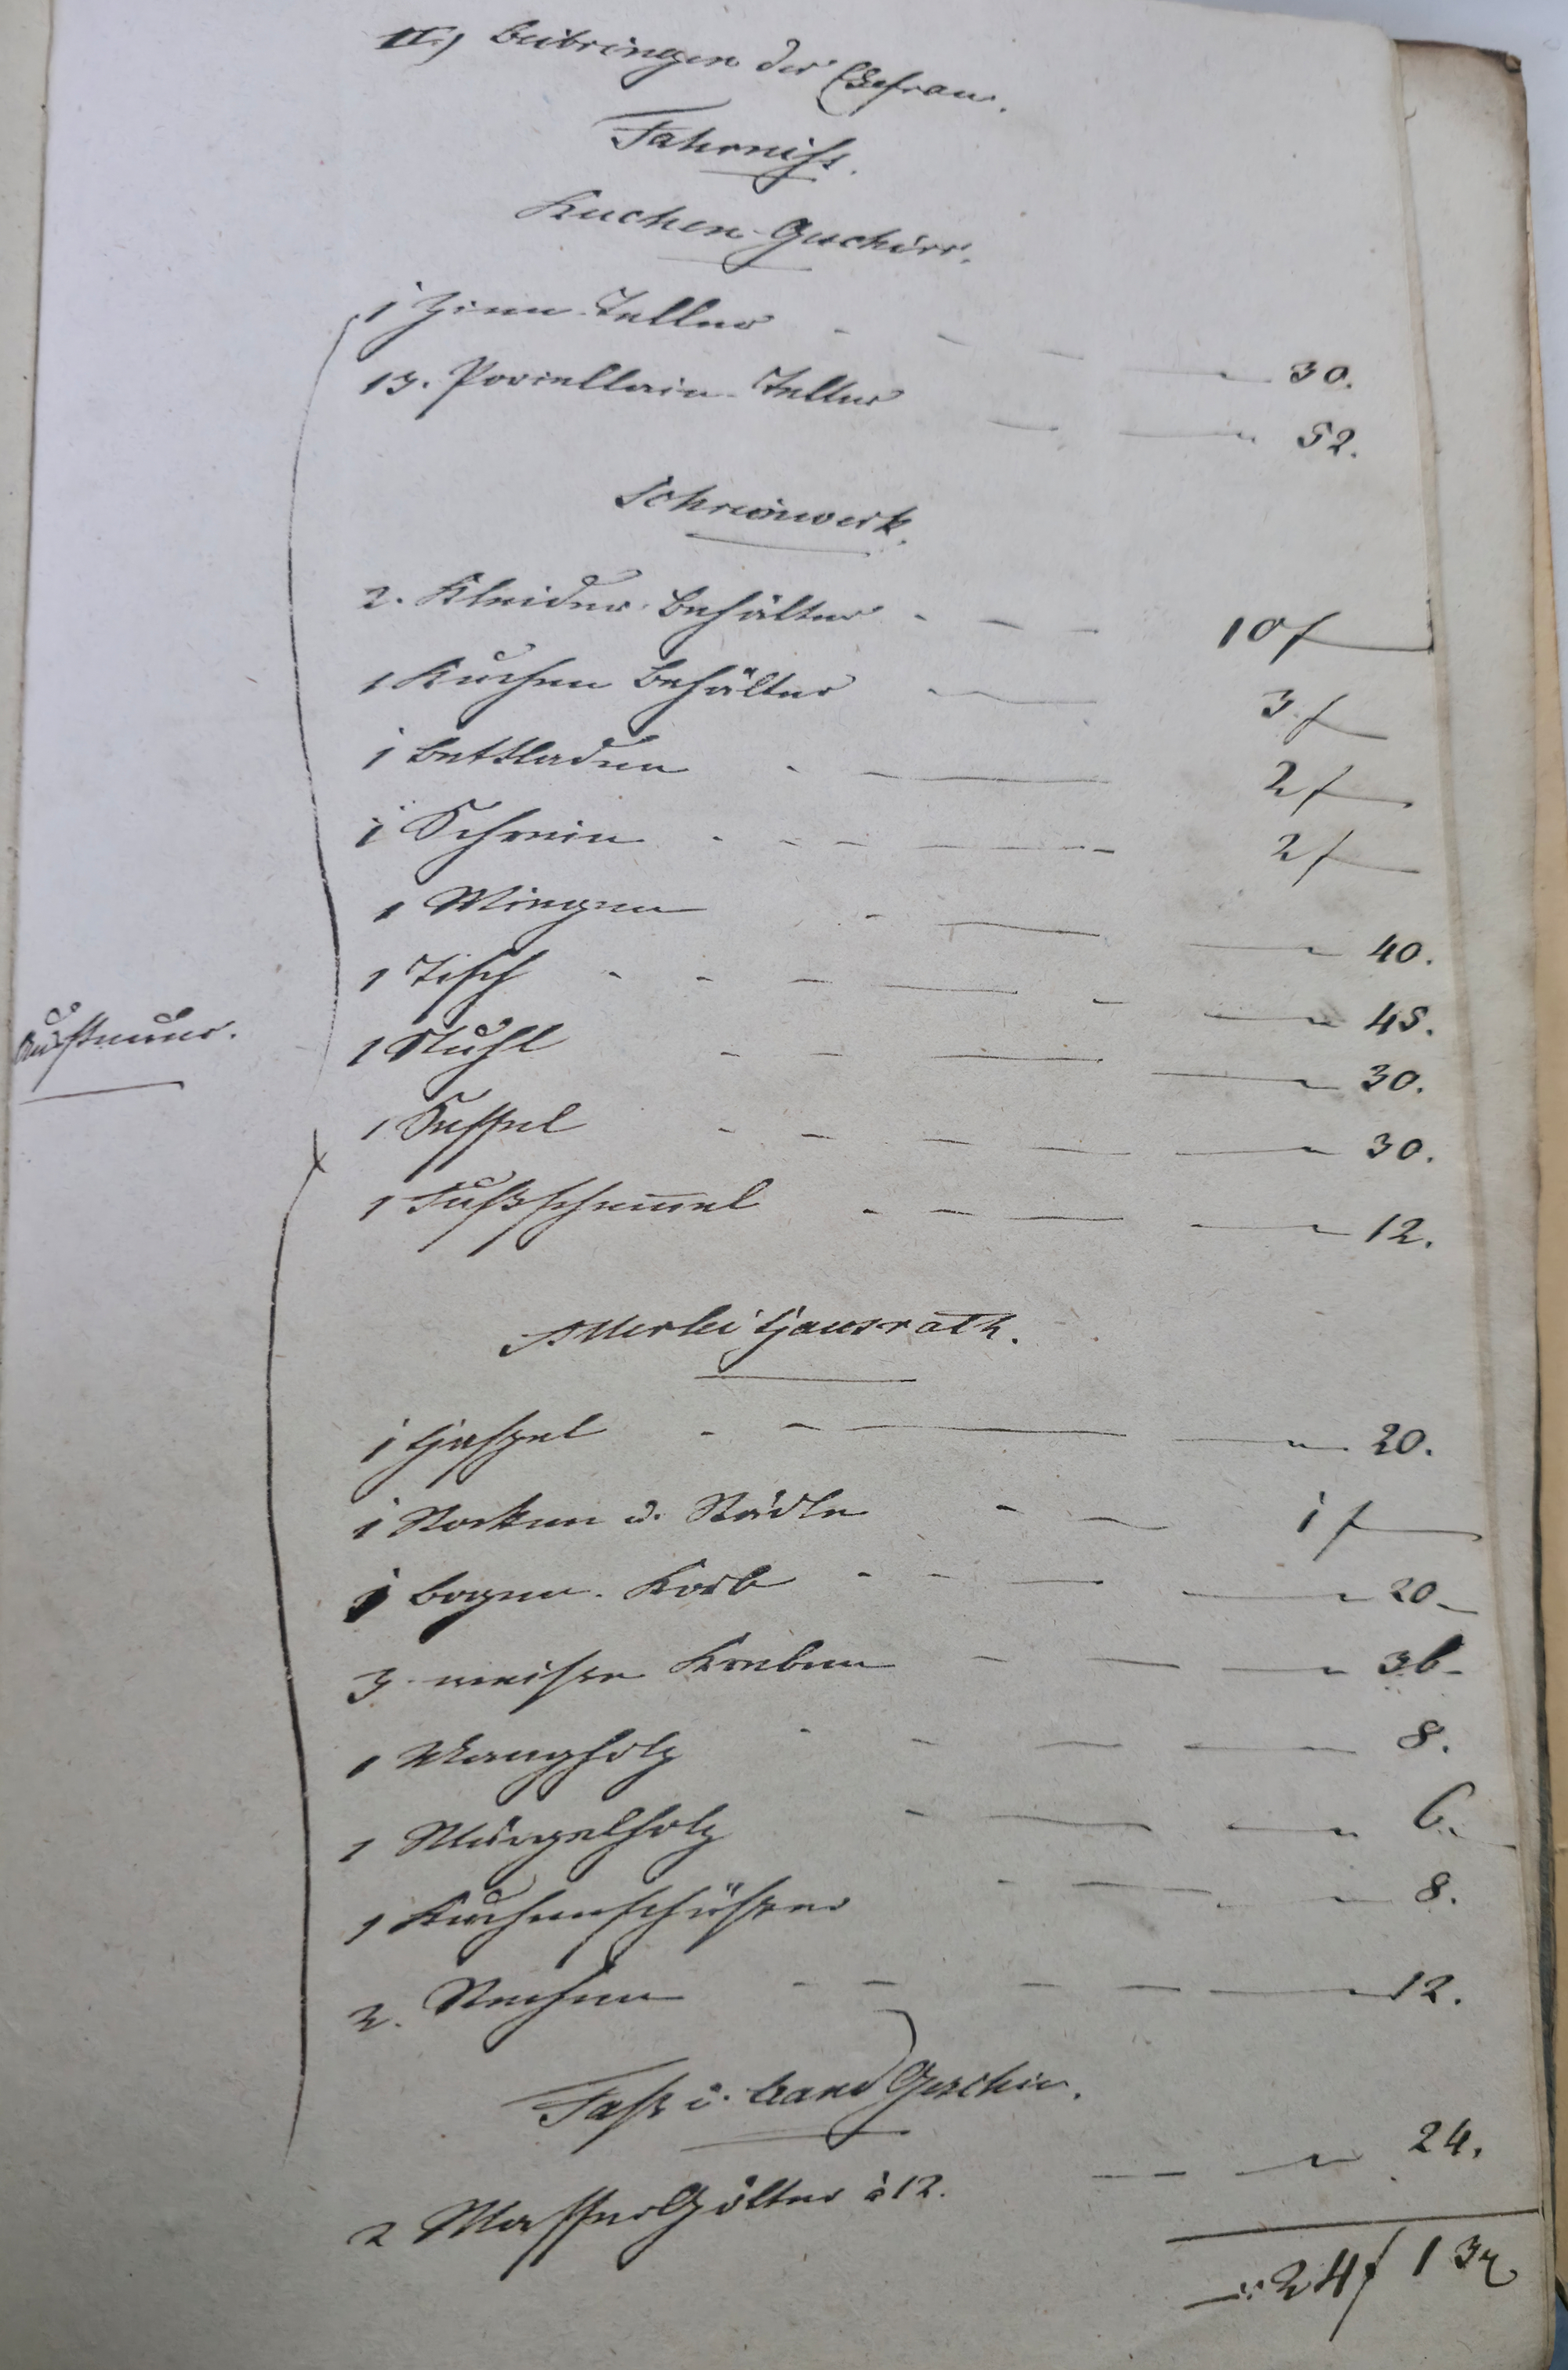 II.) Beibringen der Ehefrau.
Fahrniss.
Kuchen-Geschirr.
1 Zinn-Teller - - - — " 30.
13. Porcellain-Teller — — " 52.
Schreinwerk.
2. Kleider-Behälter - - - 10 f —
1 Kuchen Behälter - — 3 f —
1 Bettladen - — 2 f —
1 Schrein - - - — 2 f —
1 Wiegen - — — " 40.
1 Tisch - - - — - — " 45.
1 Stuhl - - — — " 30.
Aussteuer.
1 Sessel - - - — — " 30.
1 Fußschemmel - - — — " 12.
Allerlei Hausrath.
1 Haspel - - — — " 20.
1 Rocken u. Rädle - - 1 f —
1 Bogen-Korb - - — — " 20 -
3 weiße Kreben - — — " 36 -
1 Mangholz - - — — 8.
1 Wärgelholz - — — " 6.
1 Kuchenschüsser - — - " 8.
2. Rechen - - - — — " 12.
Faß u. Band Geschir.
2 Wasser Gölten à 12. — — " 24.
— : 24 f 13 x